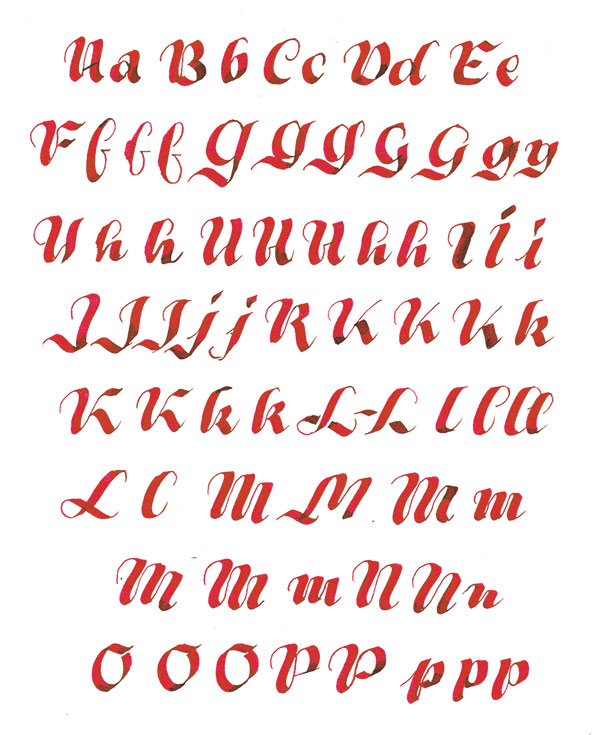 Aa Bb Cc Dd Ee
F f f f G G G G G g g
H h h H H H h h I Í i
J J J j j R K K K k
K K k k L-L l l ll
L C M M M m
M M m N N n
O O O P P p p p